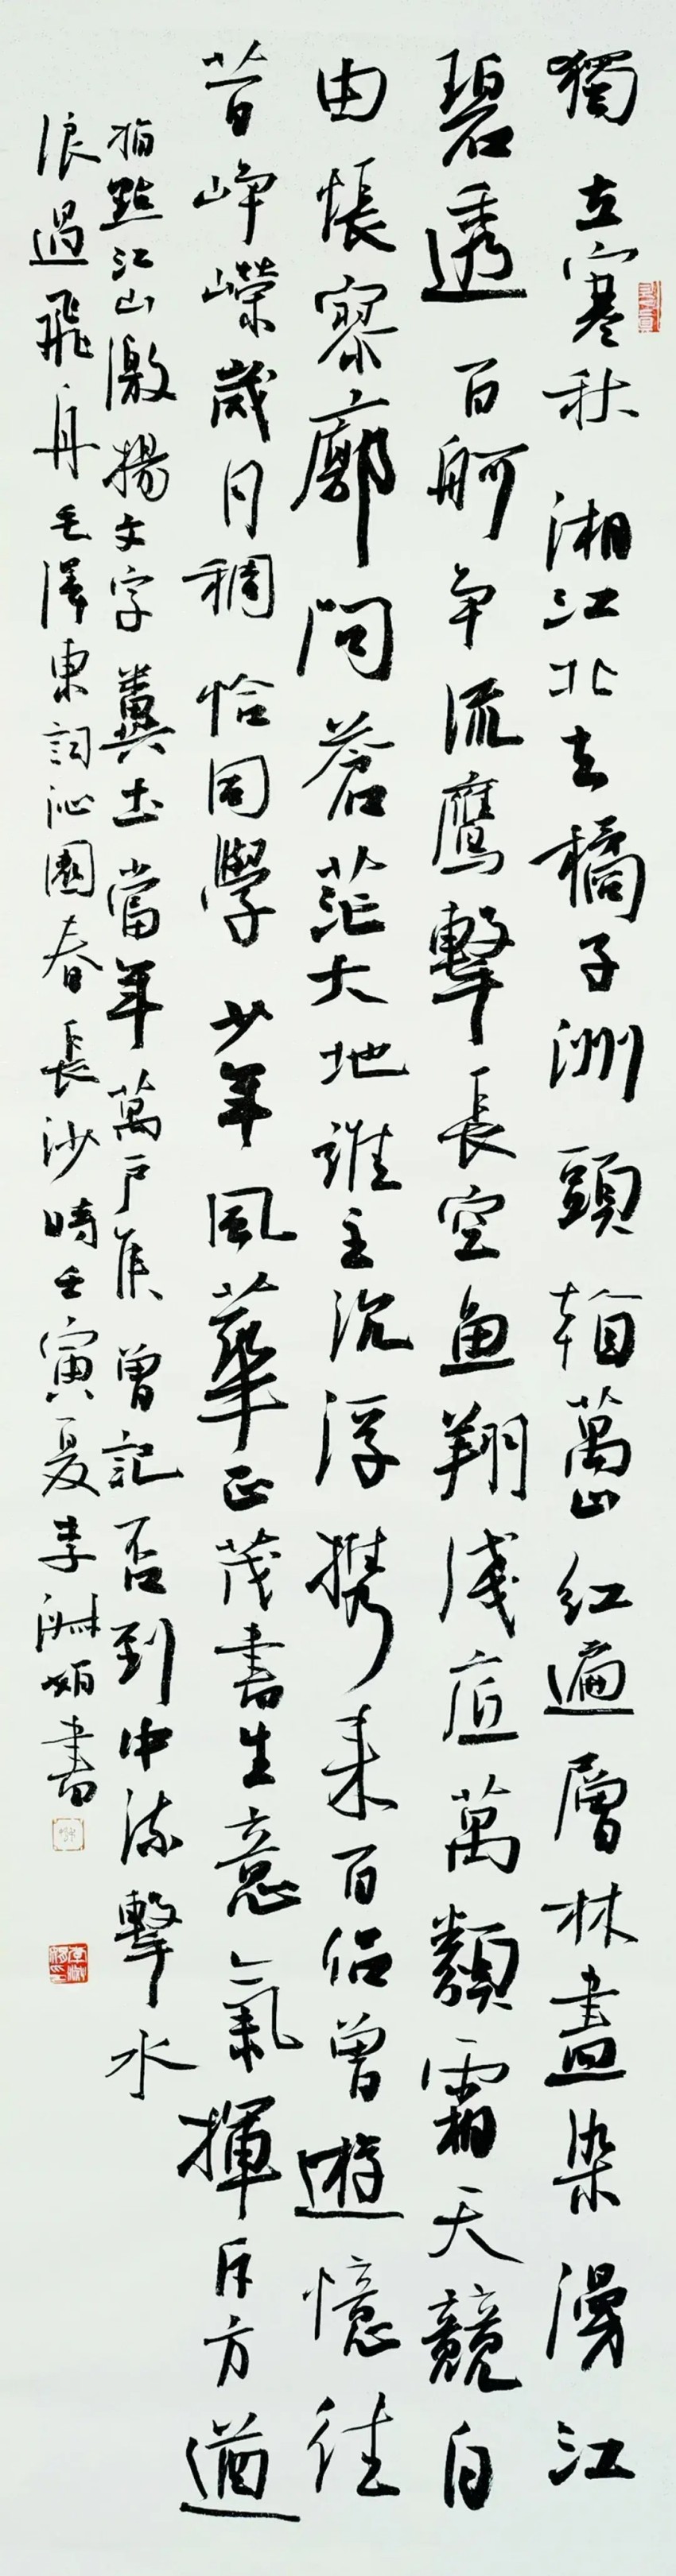 獨立寒秋湘江北去橘子洲頭看萬山紅遍層林盡染漫江
碧透百舸争流鹰擊長空鱼翔淺底萬類霜天競自
由悵寥廓問蒼茫大地誰主沉浮携来百侣曾遊憶往
昔峥嶸歲月稠恰同學少年風華正茂書生意氣揮斥方遒
指點江山激揚文字糞土當年萬户侯曾記否到中流擊水
浪遏飛舟毛澤東詞沁園春長沙時壬寅夏李書